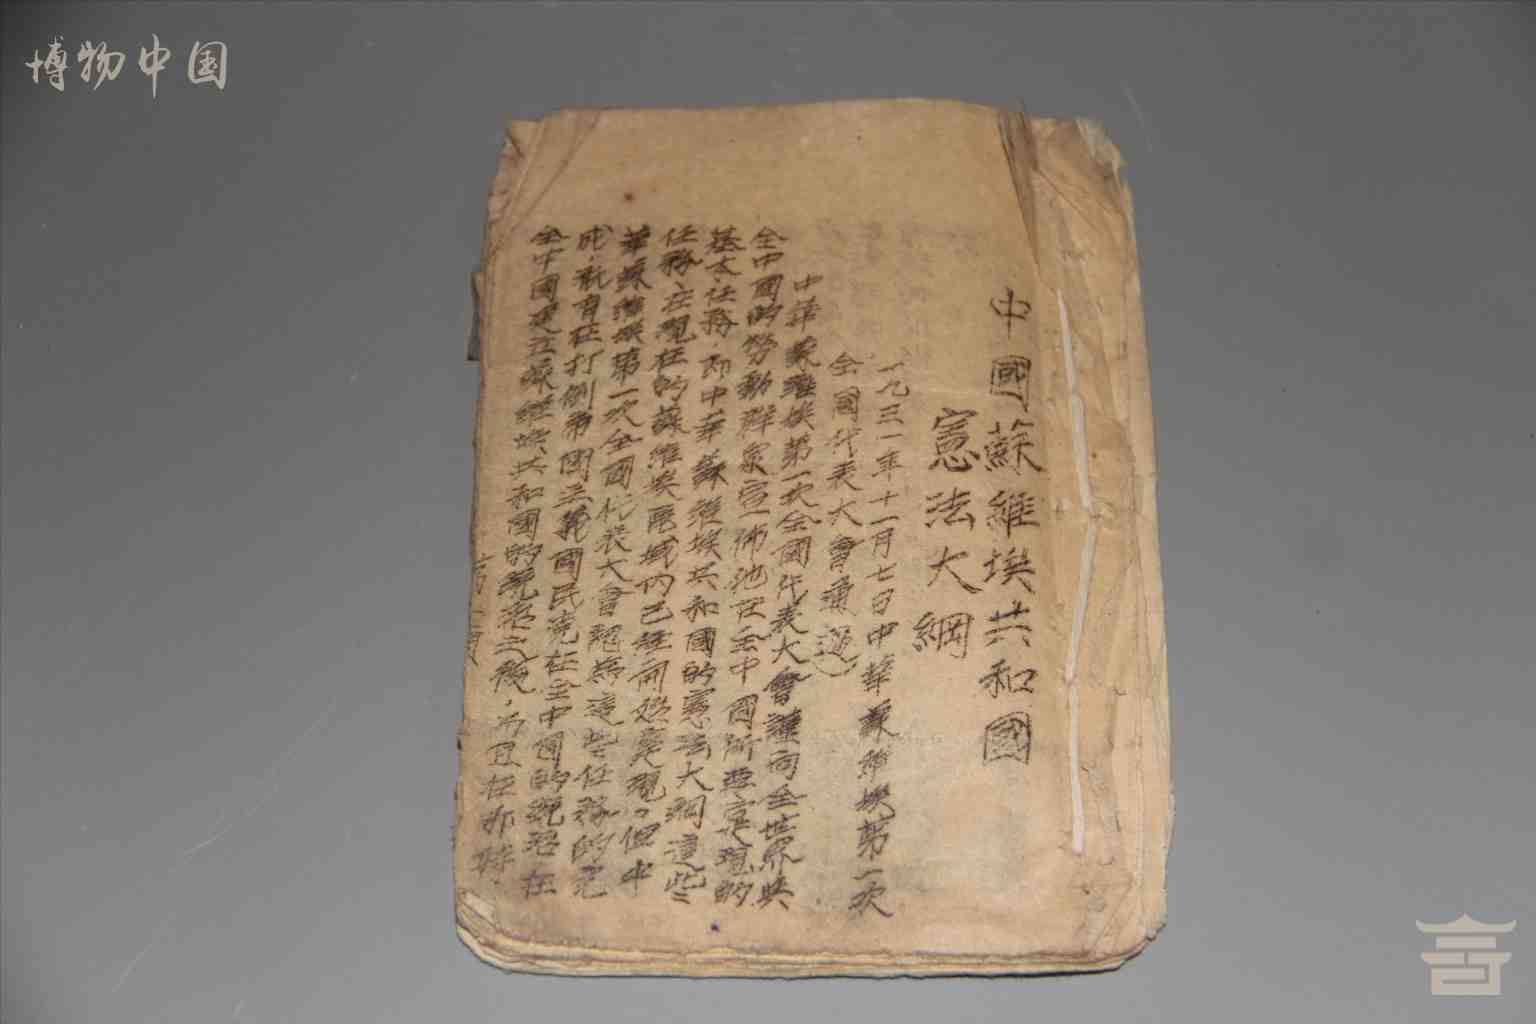 博物中国
中國蘇維埃共和國
憲法大綱
一九三一年十一月七日中華蘇維埃第一次
全國代表大會通過)
中華蘇維埃第一次全國代表大會謹向全世界與
全中國的勞動群眾宣佈牠在全中國所要實現的
基本任務,即中華蘇維埃共和國的憲法大綱這些
任務、在現在的蘇維埃區域內已經開始實現。但中
華蘇維埃第一次全國代表大會認為這些任務的完
成,祇有在打倒帝國主義國民党在全中國的統治在
全中國建立蘇維埃共和國的統治之後,而且在那時
第一頁